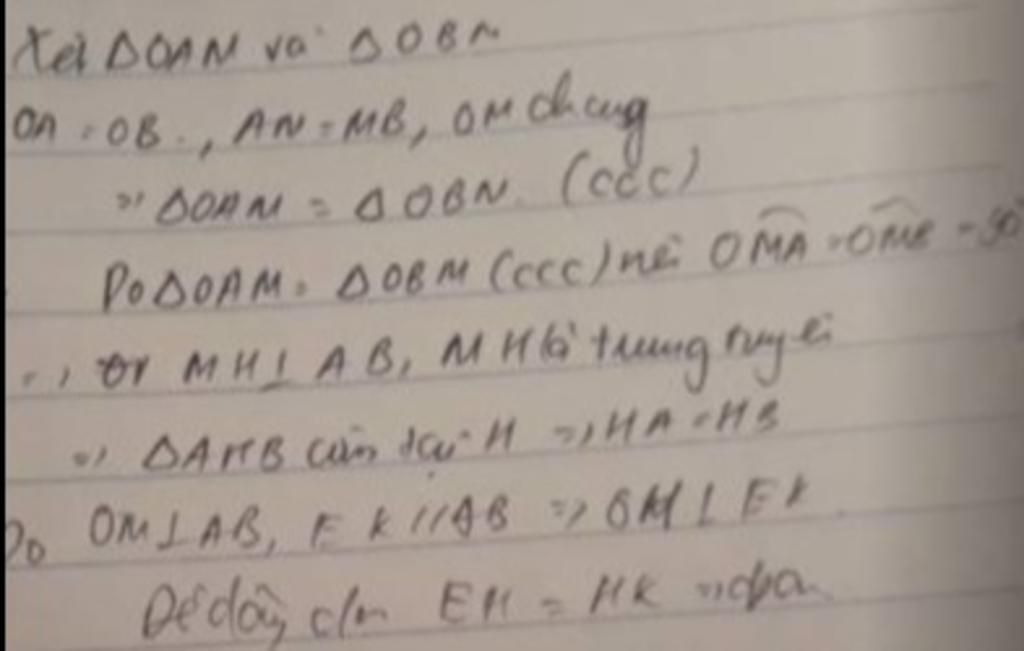 Xét ΔOAM và ΔOBM
OA = OB, AM = MB, OM chung
=> ΔOAM = ΔOBM (ccc)
Do ΔOAM = ΔOBM (ccc) nên OMA = OMB = 90
=> MH ⊥ AB, MH là trung tuyến
=> ΔAHB cân tại H => HA = HB
Do OM ⊥ AB, EK // AB => OM ⊥ EK
Dễ dàng c/m EH = HK =>